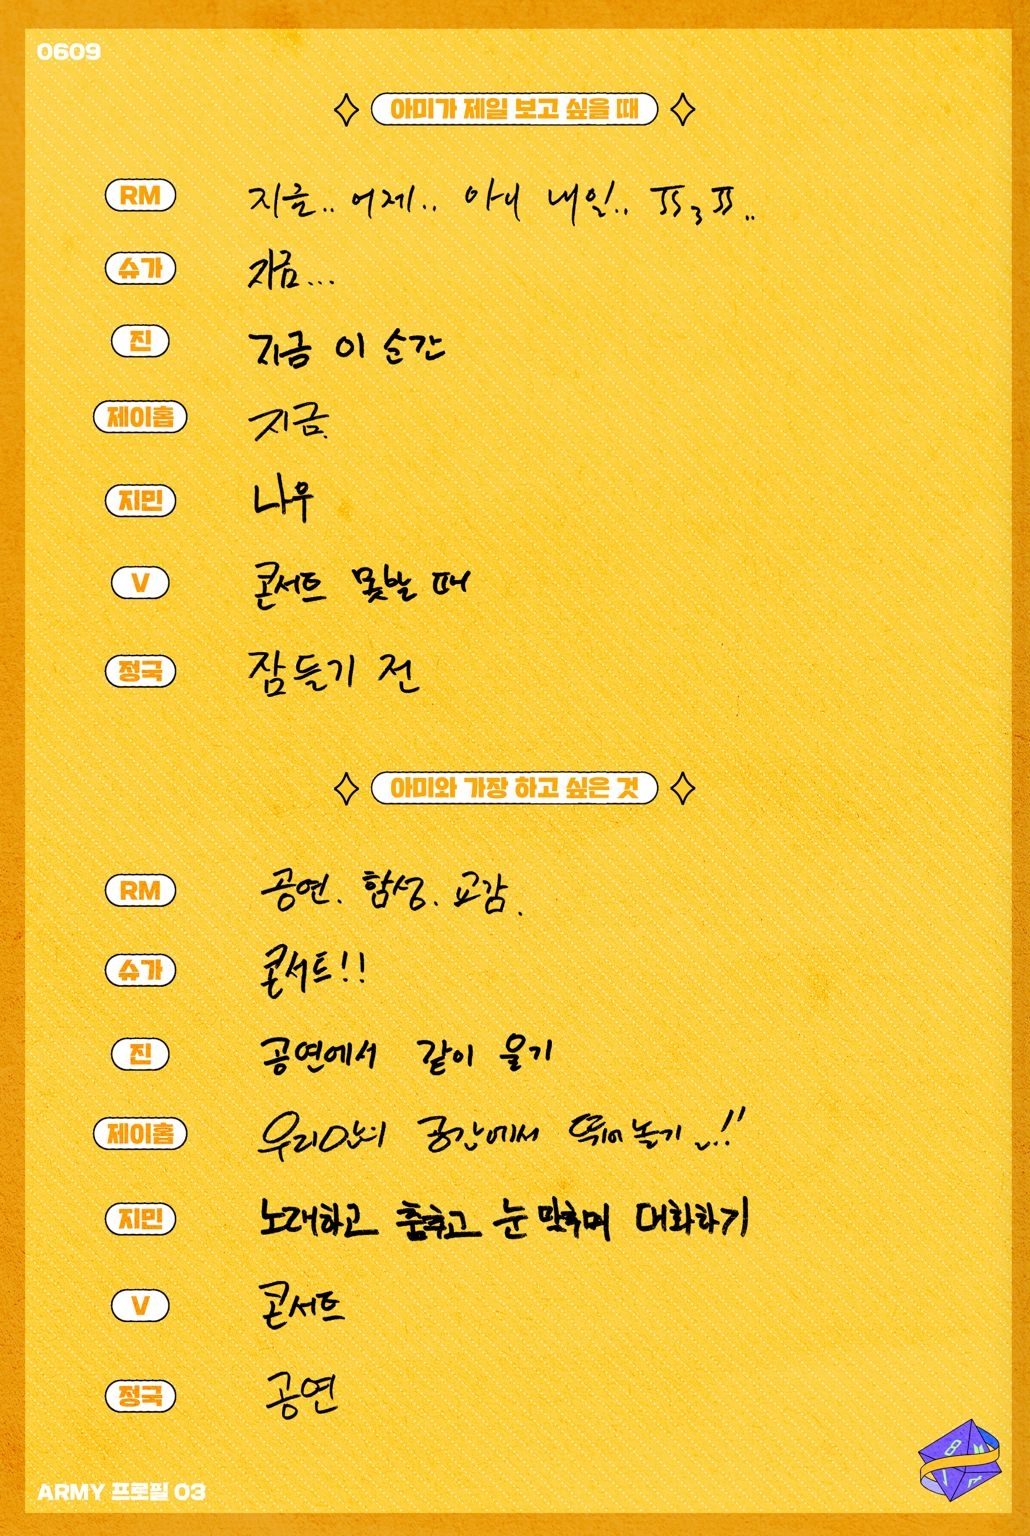 0609
아미가 제일 보고 싶을 때
RM 지금.. 어제.. 아니 내일!.. ㅠㅠ3ㅠㅠ..
슈가 지금...
진 지금 이 순간
제이홉 지금.
지민 나우
V 콘서트 못할 때
정국 잠들기 전
아미와 가장 하고 싶은 것
RM 공연. 함성. 교감.
슈가 콘서트!!
진 공연에서 같이 울기
제이홉 우리만의 공간에서 뛰어놀기 ~..!!
지민 노래하고 춤추고 눈 맞추며 대화하기
V 콘서트
정국 공연
ARMY 프로필 03